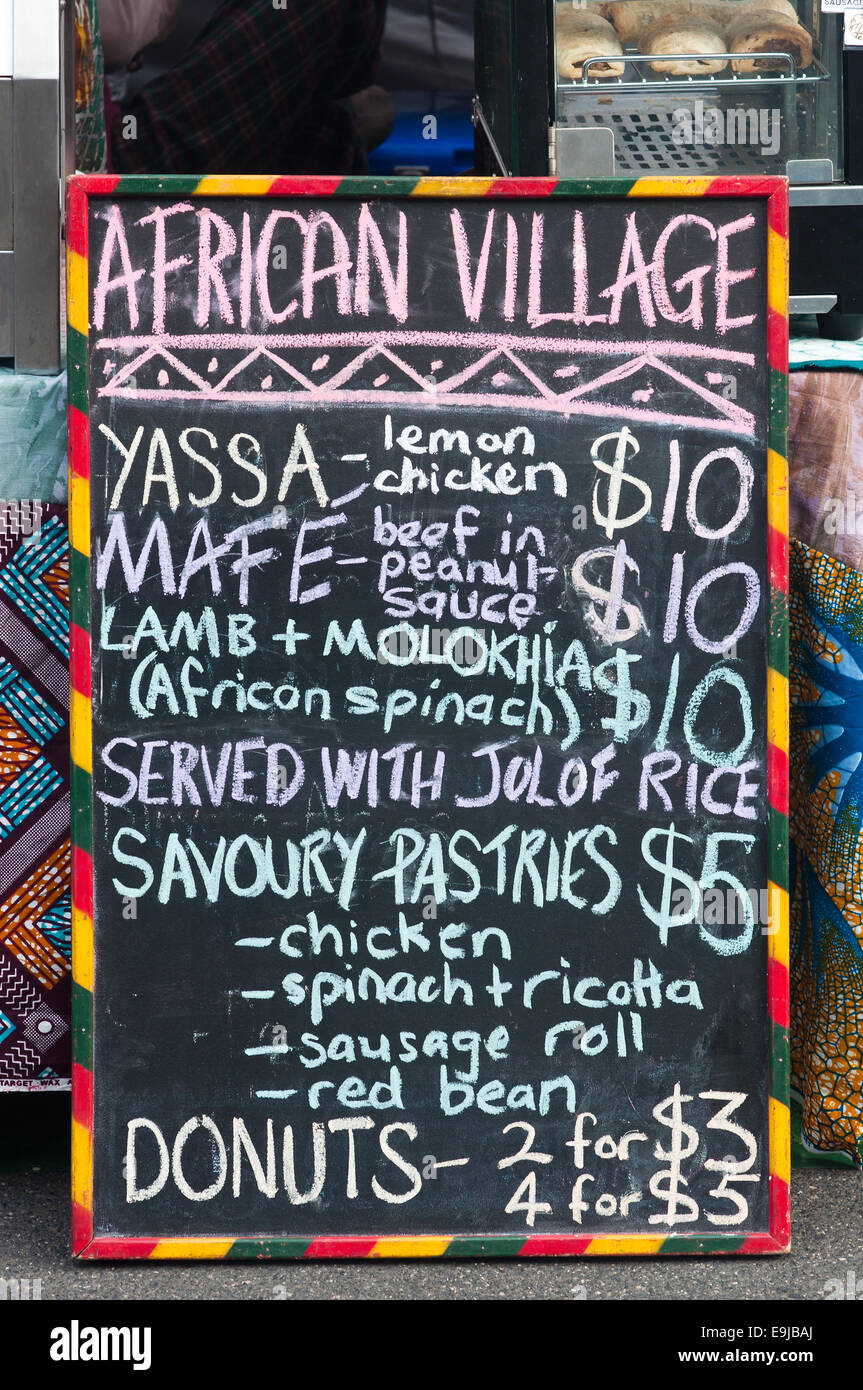 SAUSAGE
AFRICAN VILLAGE
YASSA - lemon chicken $10
MAFÉ - beef in peanut sauce $10
LAMB + MOLOKHiA
(African spinach) $10
SERVED WITH JOLOF RICE
SAVOURY PASTRIES $5
- chicken
- spinach + ricotta
- sausage roll
- red bean
DONUTS - 2 for $3
4 for $5
TARGET WAX
alamy stock photo
a
alamy
E9JBAJ
www.alamy.com